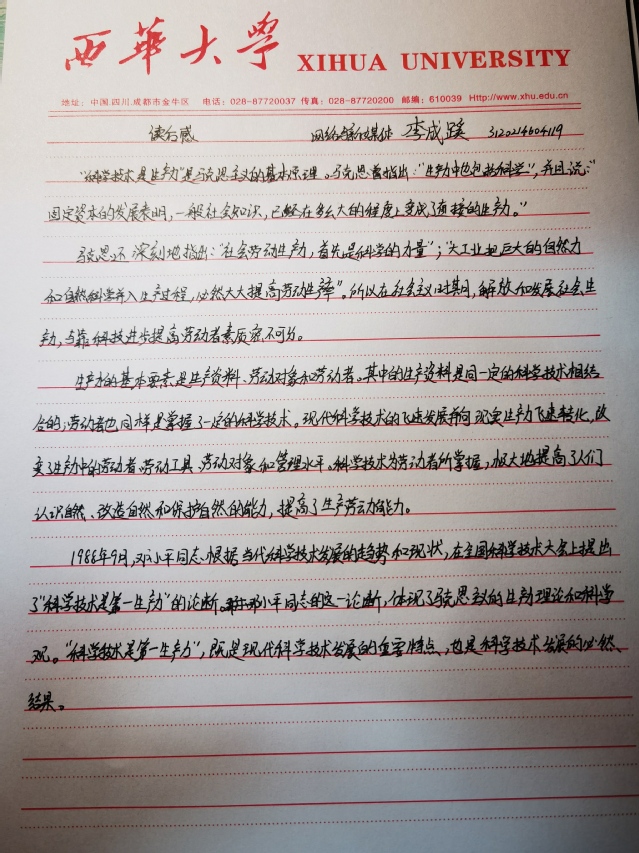 西華大学 XIHUA UNIVERSITY
地址：中国.四川.成都市金牛区 电话：028-87720037 传真：028-87720200 邮编：610039 Http://www.xhu.edu.cn
读后感 网络与新媒体 李成蹊 3120214604119
"科学技术是生产力"是马克思主义的基本原理。马克思曾指出："生产力中也包括科学"，并且说："
固定资本的发展表明，一般社会知识，已经在多么大的程度上变成了直接的生产力。"
马克思还深刻地指出："社会劳动生产力，首先是科学的力量"；"大工业把巨大的自然力
和自然科学并入生产过程，必然大大提高劳动生产率"。所以在社会主义时期，解放和发展社会生
产力，与靠科技进步提高劳动者素质密不可分。
生产力的基本要素是生产资料、劳动对象和劳动者。其中的生产资料是同一定的科学技术相结
合的；劳动者也同样是掌握了一定的科学技术。现代科学技术的飞速发展并向现实生产力飞速转化，改
变了生产力中的劳动者、劳动工具、劳动对象和管理水平。科学技术为劳动者所掌握，极大地提高了人们
认识自然、改造自然和保护自然的能力，提高了生产劳动能力。
1988年9月，邓小平同志根据当代科学技术发展的趋势和现状，在全国科学技术大会上提出
了"科学技术是第一生产力"的论断。邓小平同志的这一论断，体现了马克思主义的生产力理论和科学
观。"科学技术是第一生产力"，既是现代科学技术发展的重要特点，也是科学技术发展的必然
结果。